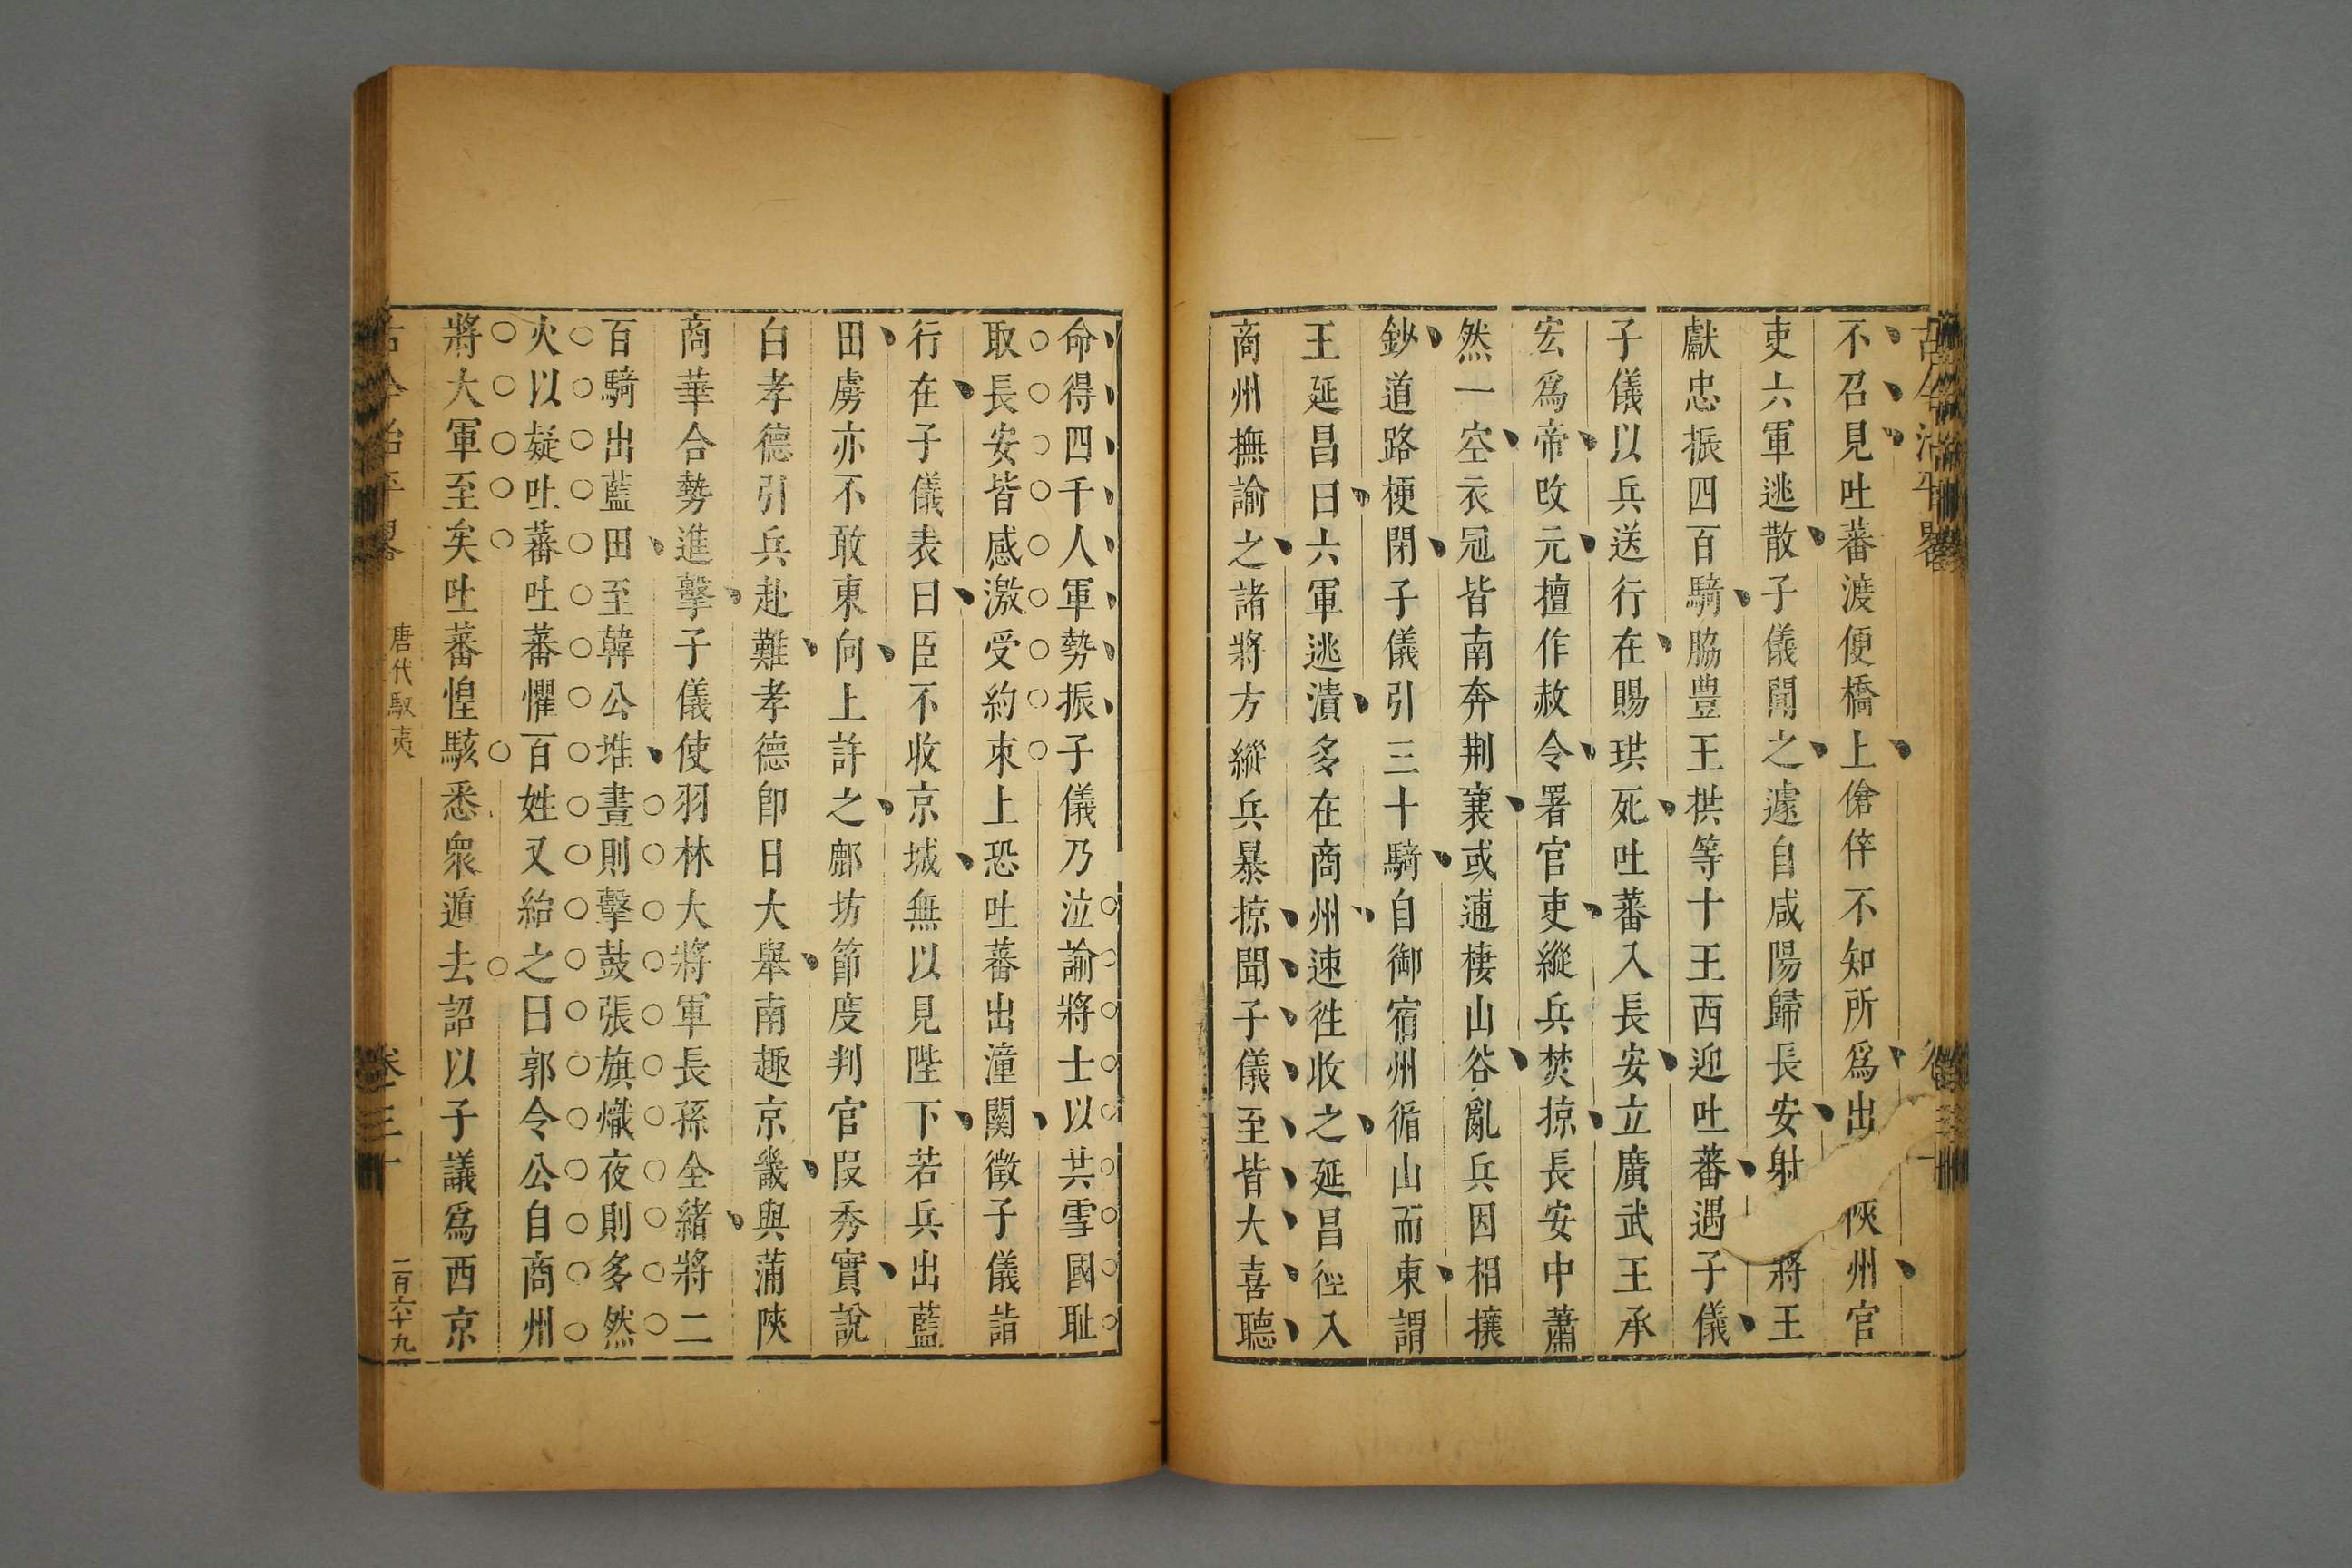 不召見吐蕃渡便橋上傖倅不知所爲出陜州官
吏六軍逃散子儀聞之遽自咸陽歸長安射將王
獻忠振四百騎脇豊王栱等十王西迎吐蕃遇子儀
子儀以兵送行在賜珙死吐蕃入長安立廣武王承
宏爲帝改元擅作赦令署官吏縱兵焚掠長安中蕭
然一空衣冠皆南奔荆襄或逋棲山谷亂兵因相攘
鈔道路梗閉子儀引三十騎自御宿州循山而東謂
王延昌曰六軍逃潰多在商州速徃收之延昌徑入
商州撫諭之諸將方縱兵暴掠聞子儀至皆大喜聽
命得四千人軍勢振子儀乃泣諭將士以共雪國耻
取長安皆感激受約束上恐吐蕃出潼關徵子儀詣
行在子儀表曰臣不收京城無以見陛下若兵出藍
田虜亦不敢東向上許之鄜坊節度判官段秀實說
白孝德引兵赴難孝德卽日大舉南趣京畿與蒲陜
商華合勢進擊子儀使羽林大將軍長孫全緒將二
百騎出藍田至韓公堆晝則擊鼓張旗熾夜則多然
火以疑吐蕃吐蕃懼百姓又紿之曰郭令公自商州
將大軍至矣吐蕃惶駭悉衆遁去詔以子議爲西京
古今治平畧 唐代馭夷 卷三十 二百六十九